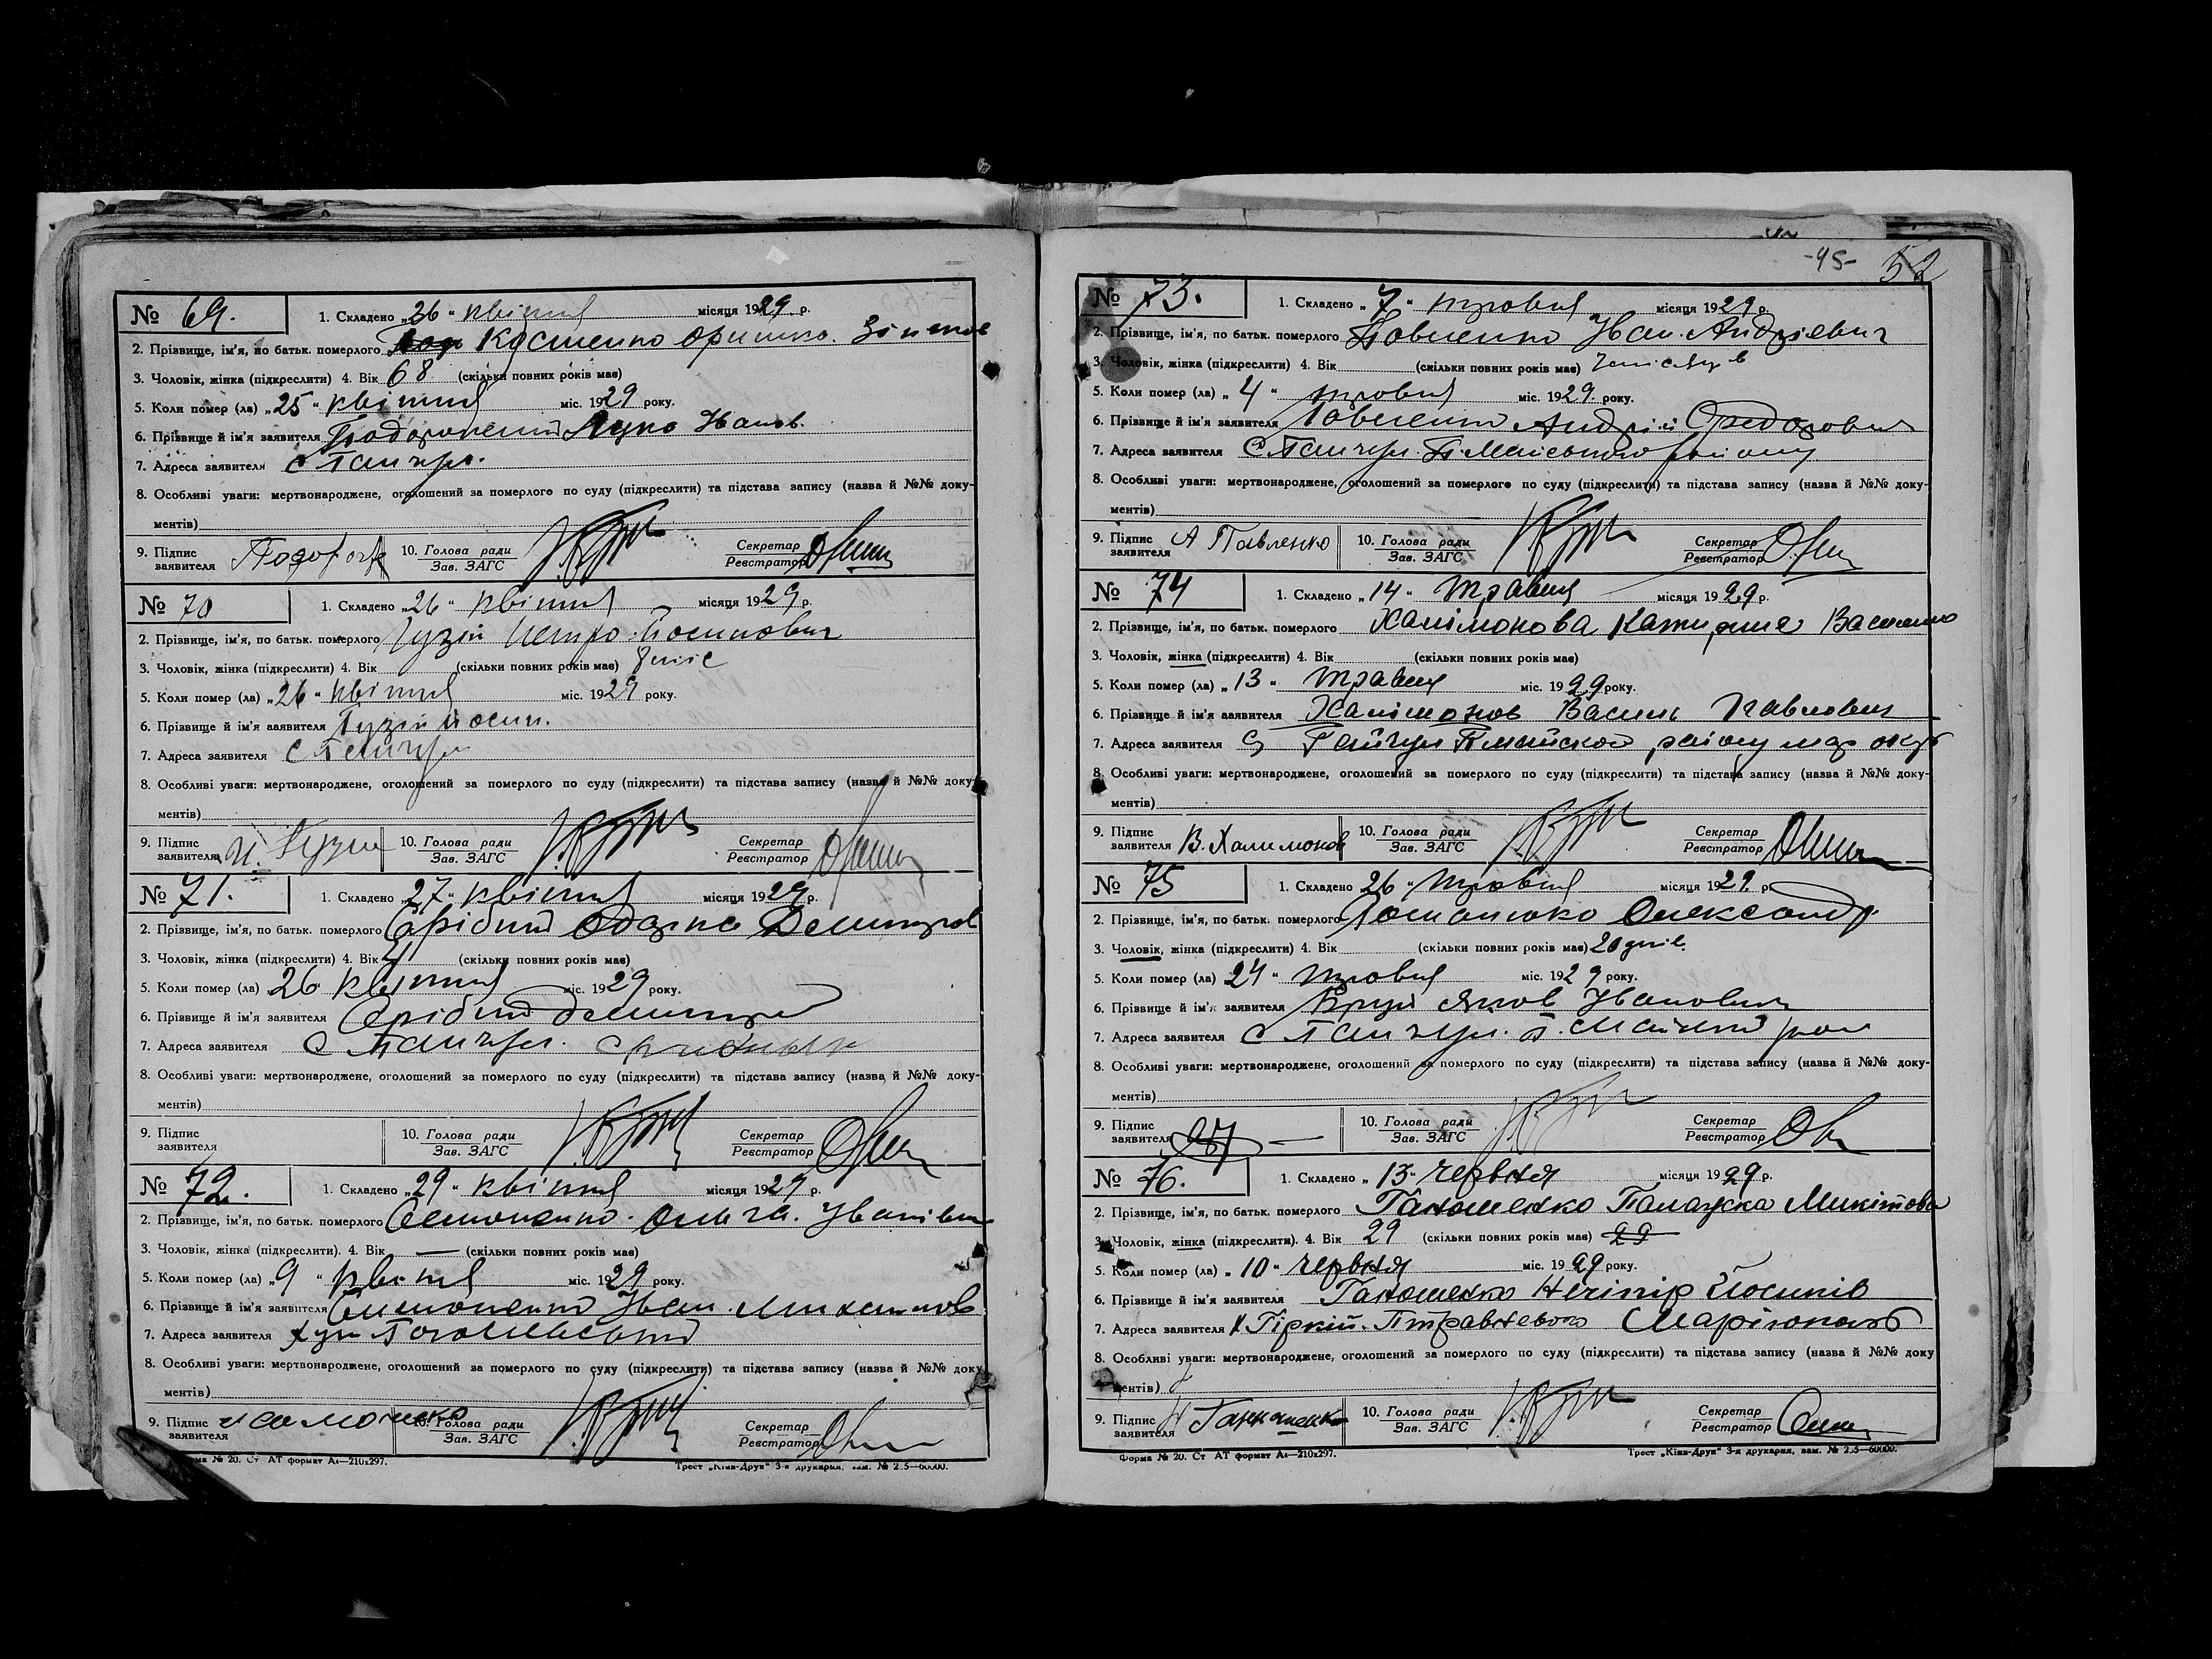 № 69. 1. Складено „26" квітня місяця 1929 р.
2. Прізвище, ім'я, по батьк. померлого Костенко Оришка
3. Чоловік, жінка (підкреслити) 4. Вік 68 (скільки повних років має)
5. Коли помер (ла) „25" квітня міс. 1929 року.
6. Прізвище й ім'я заявителя Іванов.
7. Адреса заявителя с Гайчур.
8. Особливі уваги: мертвонароджене, оголошений за померлого по суду (підкреслити) та підстава запису (назва й №№ доку-
ментів)
9. Підпис заявителя 10. Голова ради Зав. ЗАГС Секретар Реєстратор
№ 70 1. Складено „26" квітня місяця 1929 р.
2. Прізвище, ім'я, по батьк. померлого Гузій Петро Йосипович
3. Чоловік, жінка (підкреслити) 4. Вік (скільки повних років має) 8 міс
5. Коли помер (ла) „26" квітня міс. 1929 року.
6. Прізвище й ім'я заявителя Гузій Йосип.
7. Адреса заявителя с Гайчур
8. Особливі уваги: мертвонароджене, оголошений за померлого по суду (підкреслити) та підстава запису (назва й №№ доку-
ментів)
9. Підпис заявителя Й. Гузій 10. Голова ради Зав. ЗАГС Секретар Реєстратор
№ 71. 1. Складено „27" квітня місяця 1929 р.
2. Прізвище, ім'я, по батьк. померлого Одарка
3. Чоловік, жінка (підкреслити) 4. Вік (скільки повних років має)
5. Коли помер (ла) 26" квітня міс. 1929 року.
6. Прізвище й ім'я заявителя
7. Адреса заявителя с Гайчур.
8. Особливі уваги: мертвонароджене, оголошений за померлого по суду (підкреслити) та підстава запису (назва й №№ доку-
ментів)
9. Підпис заявителя 10. Голова ради Зав. ЗАГС Секретар Реєстратор
№ 72. 1. Складено „29" квітня місяця 1929 р.
2. Прізвище, ім'я, по батьк. померлого Ольга. Іванівна
3. Чоловік, жінка (підкреслити). 4. Вік — (скільки повних років має)
5. Коли помер (ла) „9" квітня міс. 1929 року.
6. Прізвище й ім'я заявителя Іван
7. Адреса заявителя хут
8. Особливі уваги: мертвонароджене, оголошений за померлого по суду (підкреслити) та підстава запису (назва й №№ доку
ментів)
9. Підпис заявителя 10. Голова ради Зав. ЗАГС Секретар Реєстратор
Форма № 20. Ст АТ формат А4—210x297. Трест „Київ-Друк" 3-я друкарня, зам. № 2.5—60000.
-45- 52
№ 73. 1. Складено „7" травня місяця 1929 р.
2. Прізвище, ім'я, по батьк. померлого Павленко Іван Андрієвич
3. Чоловік, жінка (підкреслити) 4. Вік (скільки повних років має) місяців
5. Коли помер (ла) „4" травня міс. 1929. року.
6. Прізвище й ім'я заявителя Павленко Андрій Федорович
7. Адреса заявителя С Гайчур. П. Майського району
8. Особливі уваги: мертвонароджене, оголошений за померлого по суду (підкреслити) та підстава запису (назва й №№ доку-
ментів)
9. Підпис заявителя А Павленко 10. Голова ради Зав. ЗАГС Секретар Реєстратор
№ 74 1. Складено „14" травня місяця 1929 р.
2. Прізвище, ім'я, по батьк. померлого Халімонова Катирина
3. Чоловік, жінка (підкреслити) 4. Вік (скільки повних років має)
5. Коли помер (ла) „13" травня міс. 1929 року.
6. Прізвище й ім'я заявителя Халімонов Василь Павлович
7. Адреса заявителя С Гайчур П майской району мар окр
8. Особливі уваги: мертвонароджене, оголошений за померлого по суду (підкреслити) та підстава запису (назва й №№ доку-
ментів)
9. Підпис заявителя В. Халимонов 10. Голова ради Зав. ЗАГС Секретар Реєстратор
№ 75 1. Складено 26" травня місяця 1929. р
2. Прізвище, ім'я, по батьк. померлого Олександр
3. Чоловік, жінка (підкреслити) 4. Вік (скільки повних років має) 20 днів.
5. Коли помер (ла) 24" травня міс. 1929 року.
6. Прізвище й ім'я заявителя Яков Іванович
7. Адреса заявителя с Гайчур. П. Майский рай
8. Особливі уваги: мертвонароджене, оголошений за померлого по суду (підкреслити) та підстава запису (назва й №№ доку-
ментів)
9. Підпис заявителя 10. Голова ради Зав. ЗАГС Секретар Реєстратор
№ 76. 1. Складено „13" червня місяця 1929 р.
2. Прізвище, ім'я, по батьк. померлого Ганошенко Палажка Микітова
3. Чоловік, жінка (підкреслити). 4. Вік 29 (скільки повних років має) 29
5. Коли помер (ла) „10" червня міс. 1929 року.
6. Прізвище й ім'я заявителя Ганошенко Нечіпір Йосипів
7. Адреса заявителя Х Гіркий.
8. Особливі уваги: мертвонароджене, оголошений за померлого по суду (підкреслити) та підстава запису (назва й №№ доку
ментів)
9. Підпис заявителя Ганношенко 10. Голова ради Зав. ЗАГС Секретар Реєстратор
Форма № 20. Ст АТ формат А4—210x297. Трест „Київ-Друк" 3-я друкарня, зам. № 2.5—60000.